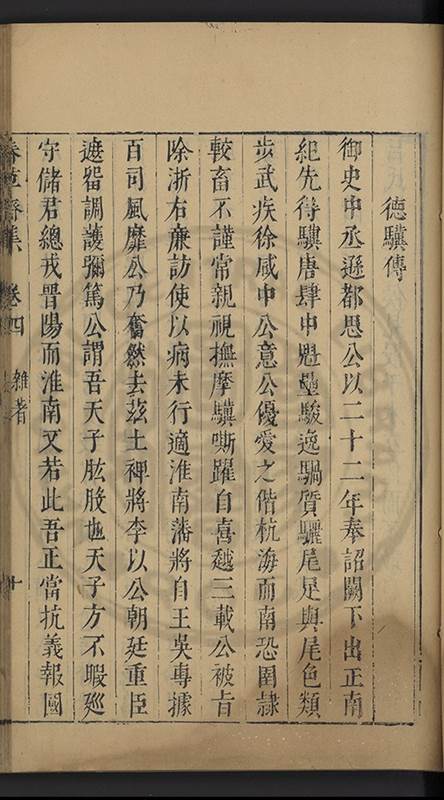 德驥傳
御史中丞遜都思公以二十二年奉詔闕下出正南
紀先得驥唐肆中魁壘駿逸騧質驪尾足與尾色類
步武疾徐咸中公意公優愛之偕杭海而南恐圉隸
較畜不謹常親視撫摩驥嘶躍自喜越三載公被旨
除浙右廉訪使以病未行適淮南藩將自王吳專據
百司風靡公乃奮然去玆土裨將李以公朝廷重臣
遮畱調護彌篤公謂吾天子肱股也天子方不暇廵
守儲君總戎晉陽而淮南又若此吾正當抗義報國
卷四 雜著 十